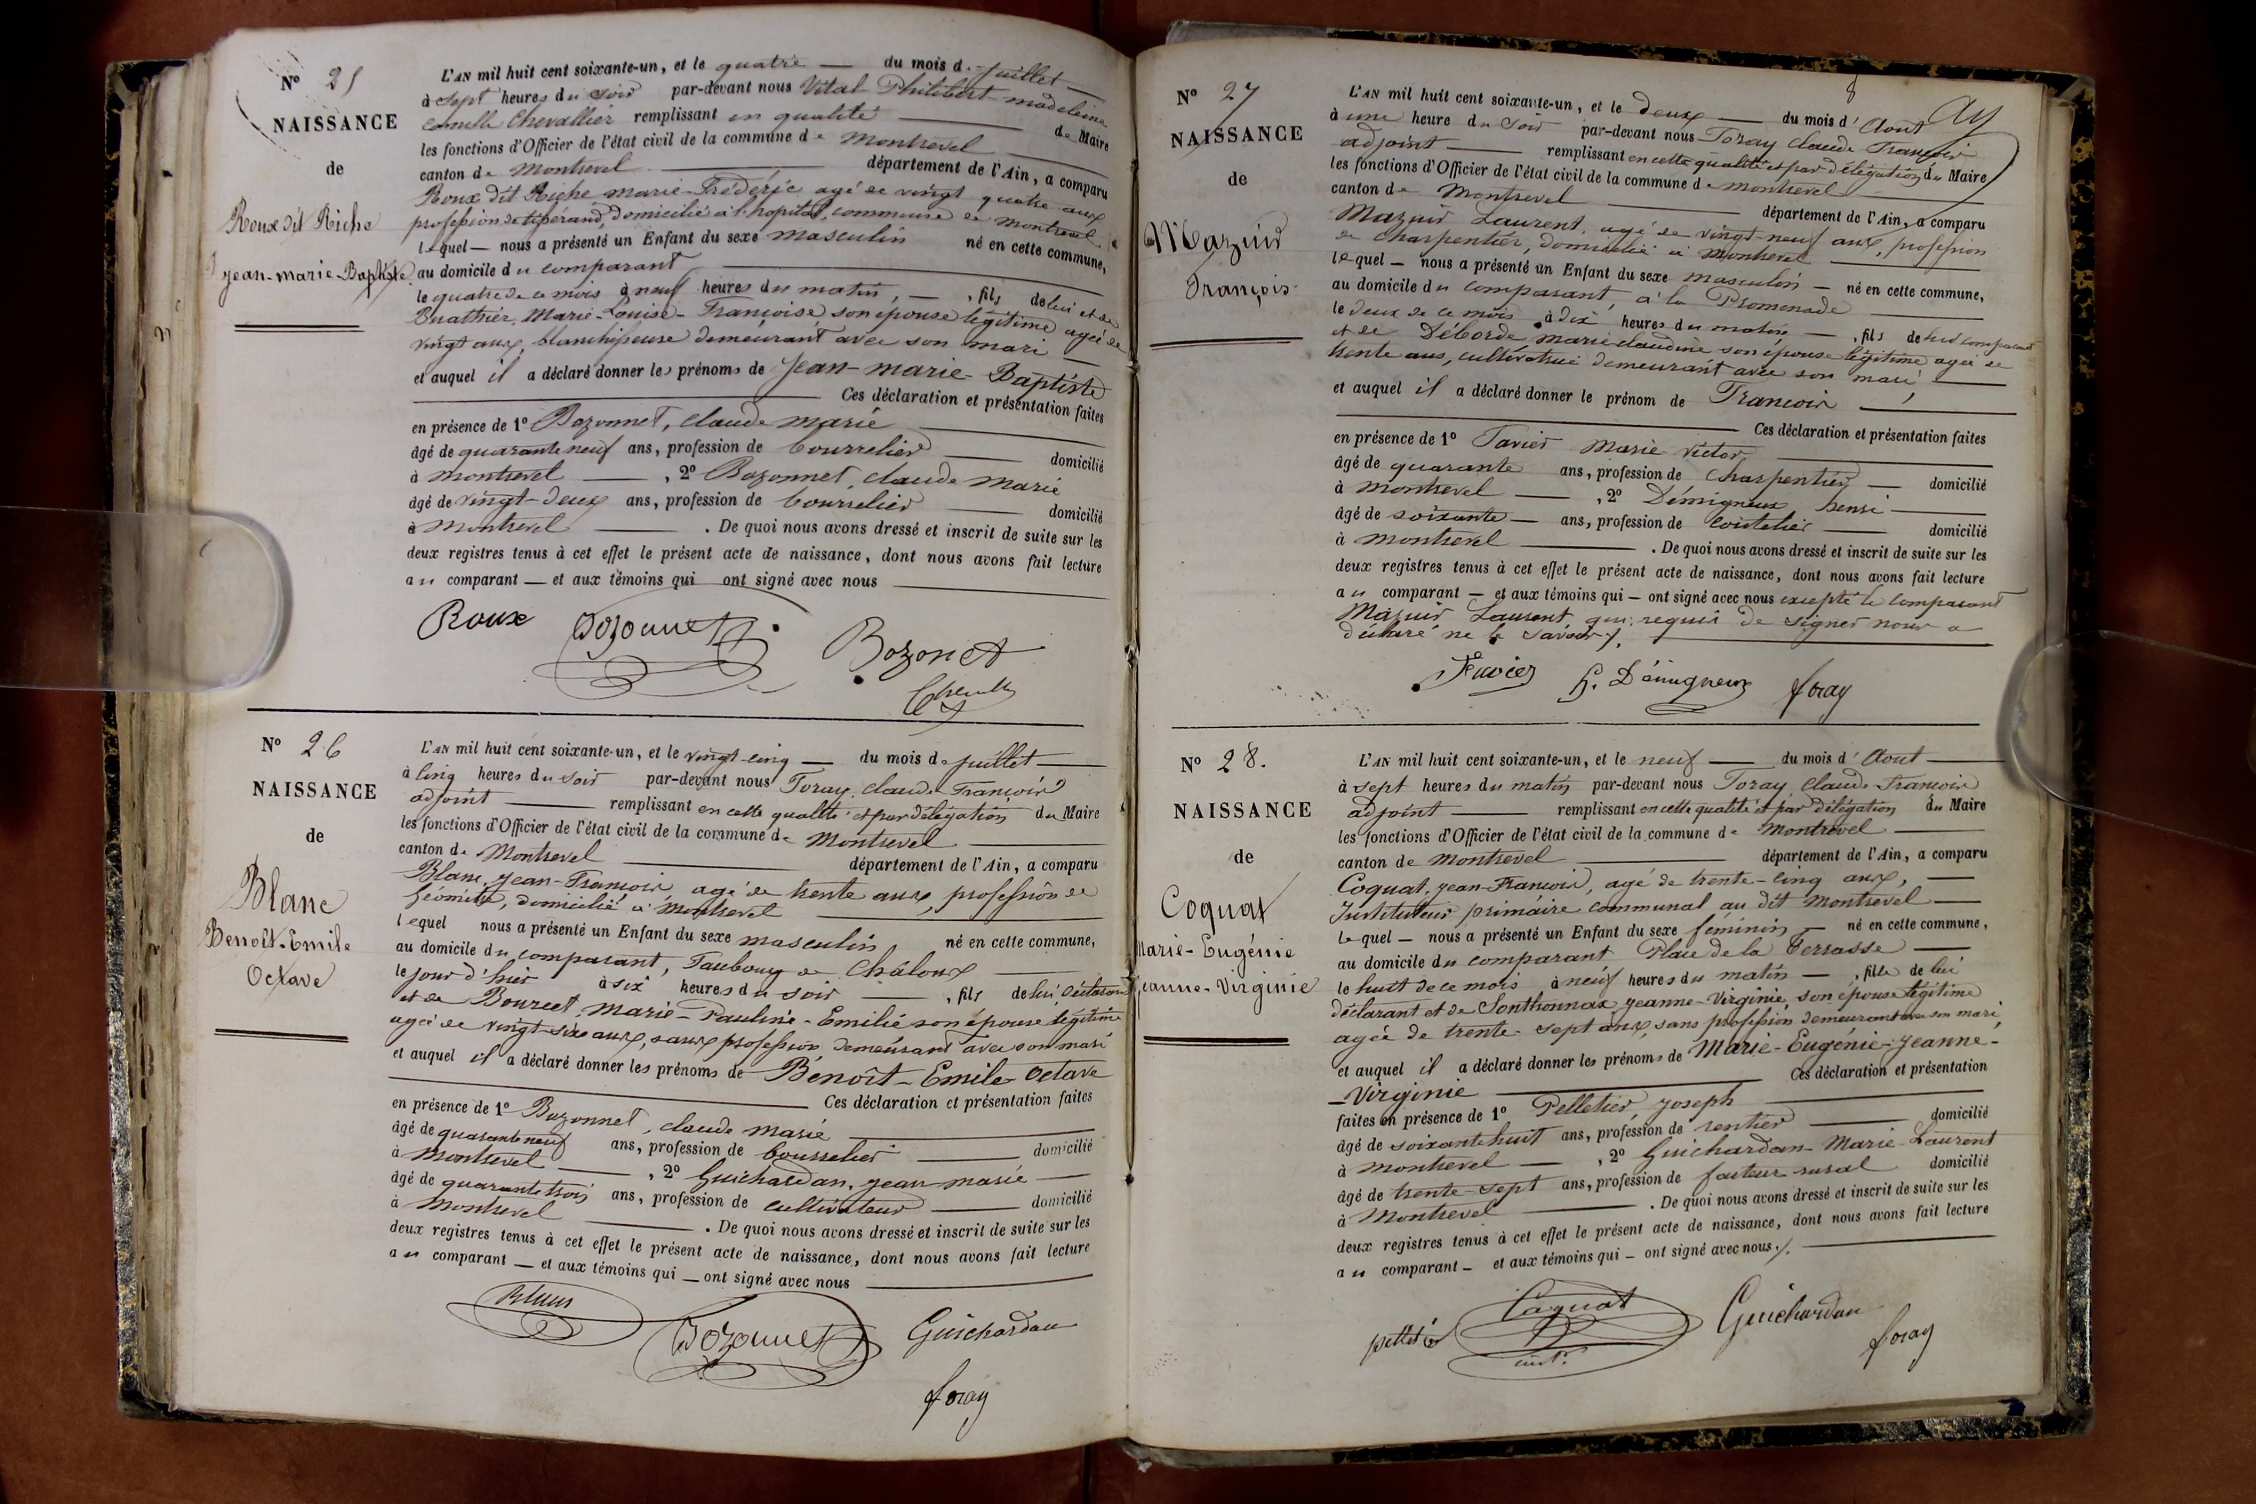 Nº 25
NAISSANCE
de
Roux dit Riche
jean-marie-Baptiste.
L'AN mil huit cent soixante-un, et le quatre — du mois d. juillet —
à sept heures du soir par-devant nous Vital Philibert madeleine
Camille Chevallier remplissant en qualité — de Maire
les fonctions d'Officier de l'état civil de la commune de Montrevel
canton de Montrevel — département de l'Ain, a comparu
Roux dit Riche marie-Frédéric agé de vingt quatre aux
profession de tisserand, domicilié à l'hopital, commune de Montrevel.
lequel — nous a présenté un Enfant du sexe masculin né en cette commune,
au domicile du comparant —
le quatre de ce mois à neuf heures du matin, — , fils de lui et de
Buathier, Marie-Louise-Françoise son épouse légitime agée de
vingt aux, blanchisseuse demeurant avec son mari —
et auquel il a déclaré donner les prénoms de Jean-marie-Baptiste
— Ces déclaration et présentation faites
en présence de 1º Bozonnet, claude marie —
âgé de quarante neuf ans, profession de bourrelier — domicilié
à montrevel — , 2º Bozonnet, claude marie
âgé de vingt-deux ans, profession de bourrelier — domicilié
à Montrevel — . De quoi nous avons dressé et inscrit de suite sur les
deux registres tenus à cet effet le présent acte de naissance, dont nous avons fait lecture
au comparant — et aux témoins qui ont signé avec nous —
Roux Bozonnet
Bozonet
Nº 26
NAISSANCE
de
Blanc
Benoît-Emile
Octave
L'AN mil huit cent soixante-un, et le vingt-cinq — du mois de juillet —
à cinq heures du soir par-devant nous Foray, claude François
adjoint — remplissant en cette qualité et par délégation du Maire
les fonctions d'Officier de l'état civil de la commune de Montrevel
canton de Montrevel — département de l'Ain, a comparu
Blanc, jean-François agé de trente aux, profession de
Géomètre, domicilié à Montrevel —
lequel nous a présenté un Enfant du sexe masculin né en cette commune,
au domicile du comparant, Faubourg de Châloux —
le jour d'hier à six heures du soir — , fils de lui, déclarant
et de Bourcet, Marie-Pauline-Emilie son épouse légitime
agée de vingt-six aux, sans profession demeurant avec son mari
et auquel il a déclaré donner les prénoms de Bénoît-Emile Octave
— Ces déclaration et présentation faites
en présence de 1º Bozonnet, claude marie —
âgé de quarante neuf ans, profession de bourrelier — domicilié
à Montrevel — , 2º Guichardan, jean-marie —
âgé de quarante trois ans, profession de cultivateur — domicilié
à Montrevel — . De quoi nous avons dressé et inscrit de suite sur les
deux registres tenus à cet effet le présent acte de naissance, dont nous avons fait lecture
au comparant — et aux témoins qui — ont signé avec nous —
Blanc Bozonnet Guichardan
foray
8
Nº 27
NAISSANCE
de
Mazuir
François
L'AN mil huit cent soixante-un, et le deux — du mois d' Aout
à une heure du soir par-devant nous Foray claude François
adjoint — remplissant en cette qualité et par délégation du Maire
les fonctions d'Officier de l'état civil de la commune de montrevel
canton de Montrevel — département de l'Ain, a comparu
Mazuir Laurent, agé de vingt-neuf aux, profession
de charpentier, domicilié à Montrevel —
lequel — nous a présenté un Enfant du sexe masculin — né en cette commune,
au domicile du comparant, à la Promenade —
le deux de ce mois à dix heures du matin — , fils de lui comparant
et de Déborde marie claudine son épouse légitime agée de
trente aus, cultivatrice demeurant avec son mari —
et auquel il a déclaré donner le prénom de François —
— Ces déclaration et présentation faites
en présence de 1º Favier Marie Victor —
âgé de quarante ans, profession de charpentier — domicilié
à montrevel — , 2º Démigneux henri —
âgé de soixante — ans, profession de coutelier — domicilié
à montrevel — . De quoi nous avons dressé et inscrit de suite sur les
deux registres tenus à cet effet le présent acte de naissance, dont nous avons fait lecture
au comparant — et aux témoins qui — ont signé avec nous excepté le comparant
Mazuir Laurent, qui, requis de signer nous a
déclaré ne le savoir —
Favier h. Démigneux foray
Nº 28.
NAISSANCE
de
Coquat
Marie-Eugénie
Jeanne-Virginie
L'AN mil huit cent soixante-un, et le neuf — du mois d' Aout —
à sept heures du matin par-devant nous Foray, Claude François
adjoint — remplissant en cette qualité et par délégation du Maire
les fonctions d'Officier de l'état civil de la commune de Montrevel —
canton de montrevel — département de l'Ain, a comparu
Coquat, jean-François, agé de trente-cinq aux, —
Instituteur primaire communal au dit Montrevel —
lequel — nous a présenté un Enfant du sexe féminin — né en cette commune,
au domicile du comparant Place de la Terrasse —
le huit de ce mois à neuf heures du matin — , fille de lui
déclarant et de Sonthonnax jeanne-Virginie, son épouse légitime
agée de trente-sept aux, sans profession demeurant avec son mari,
et auquel il a déclaré donner les prénoms de Marie-Eugénie-Jeanne-
-Virginie — Ces déclaration et présentation
faites en présence de 1º Pelletier joseph —
âgé de soixante huit ans, profession de rentier — domicilié
à Montrevel — , 2º Guichardan Marie-Laurent
âgé de trente-sept ans, profession de facteur rural domicilié
à Montrevel — . De quoi nous avons dressé et inscrit de suite sur les
deux registres tenus à cet effet le présent acte de naissance, dont nous avons fait lecture
au comparant — et aux témoins qui — ont signé avec nous. —
pelletier Coquat Guichardan
inst. foray